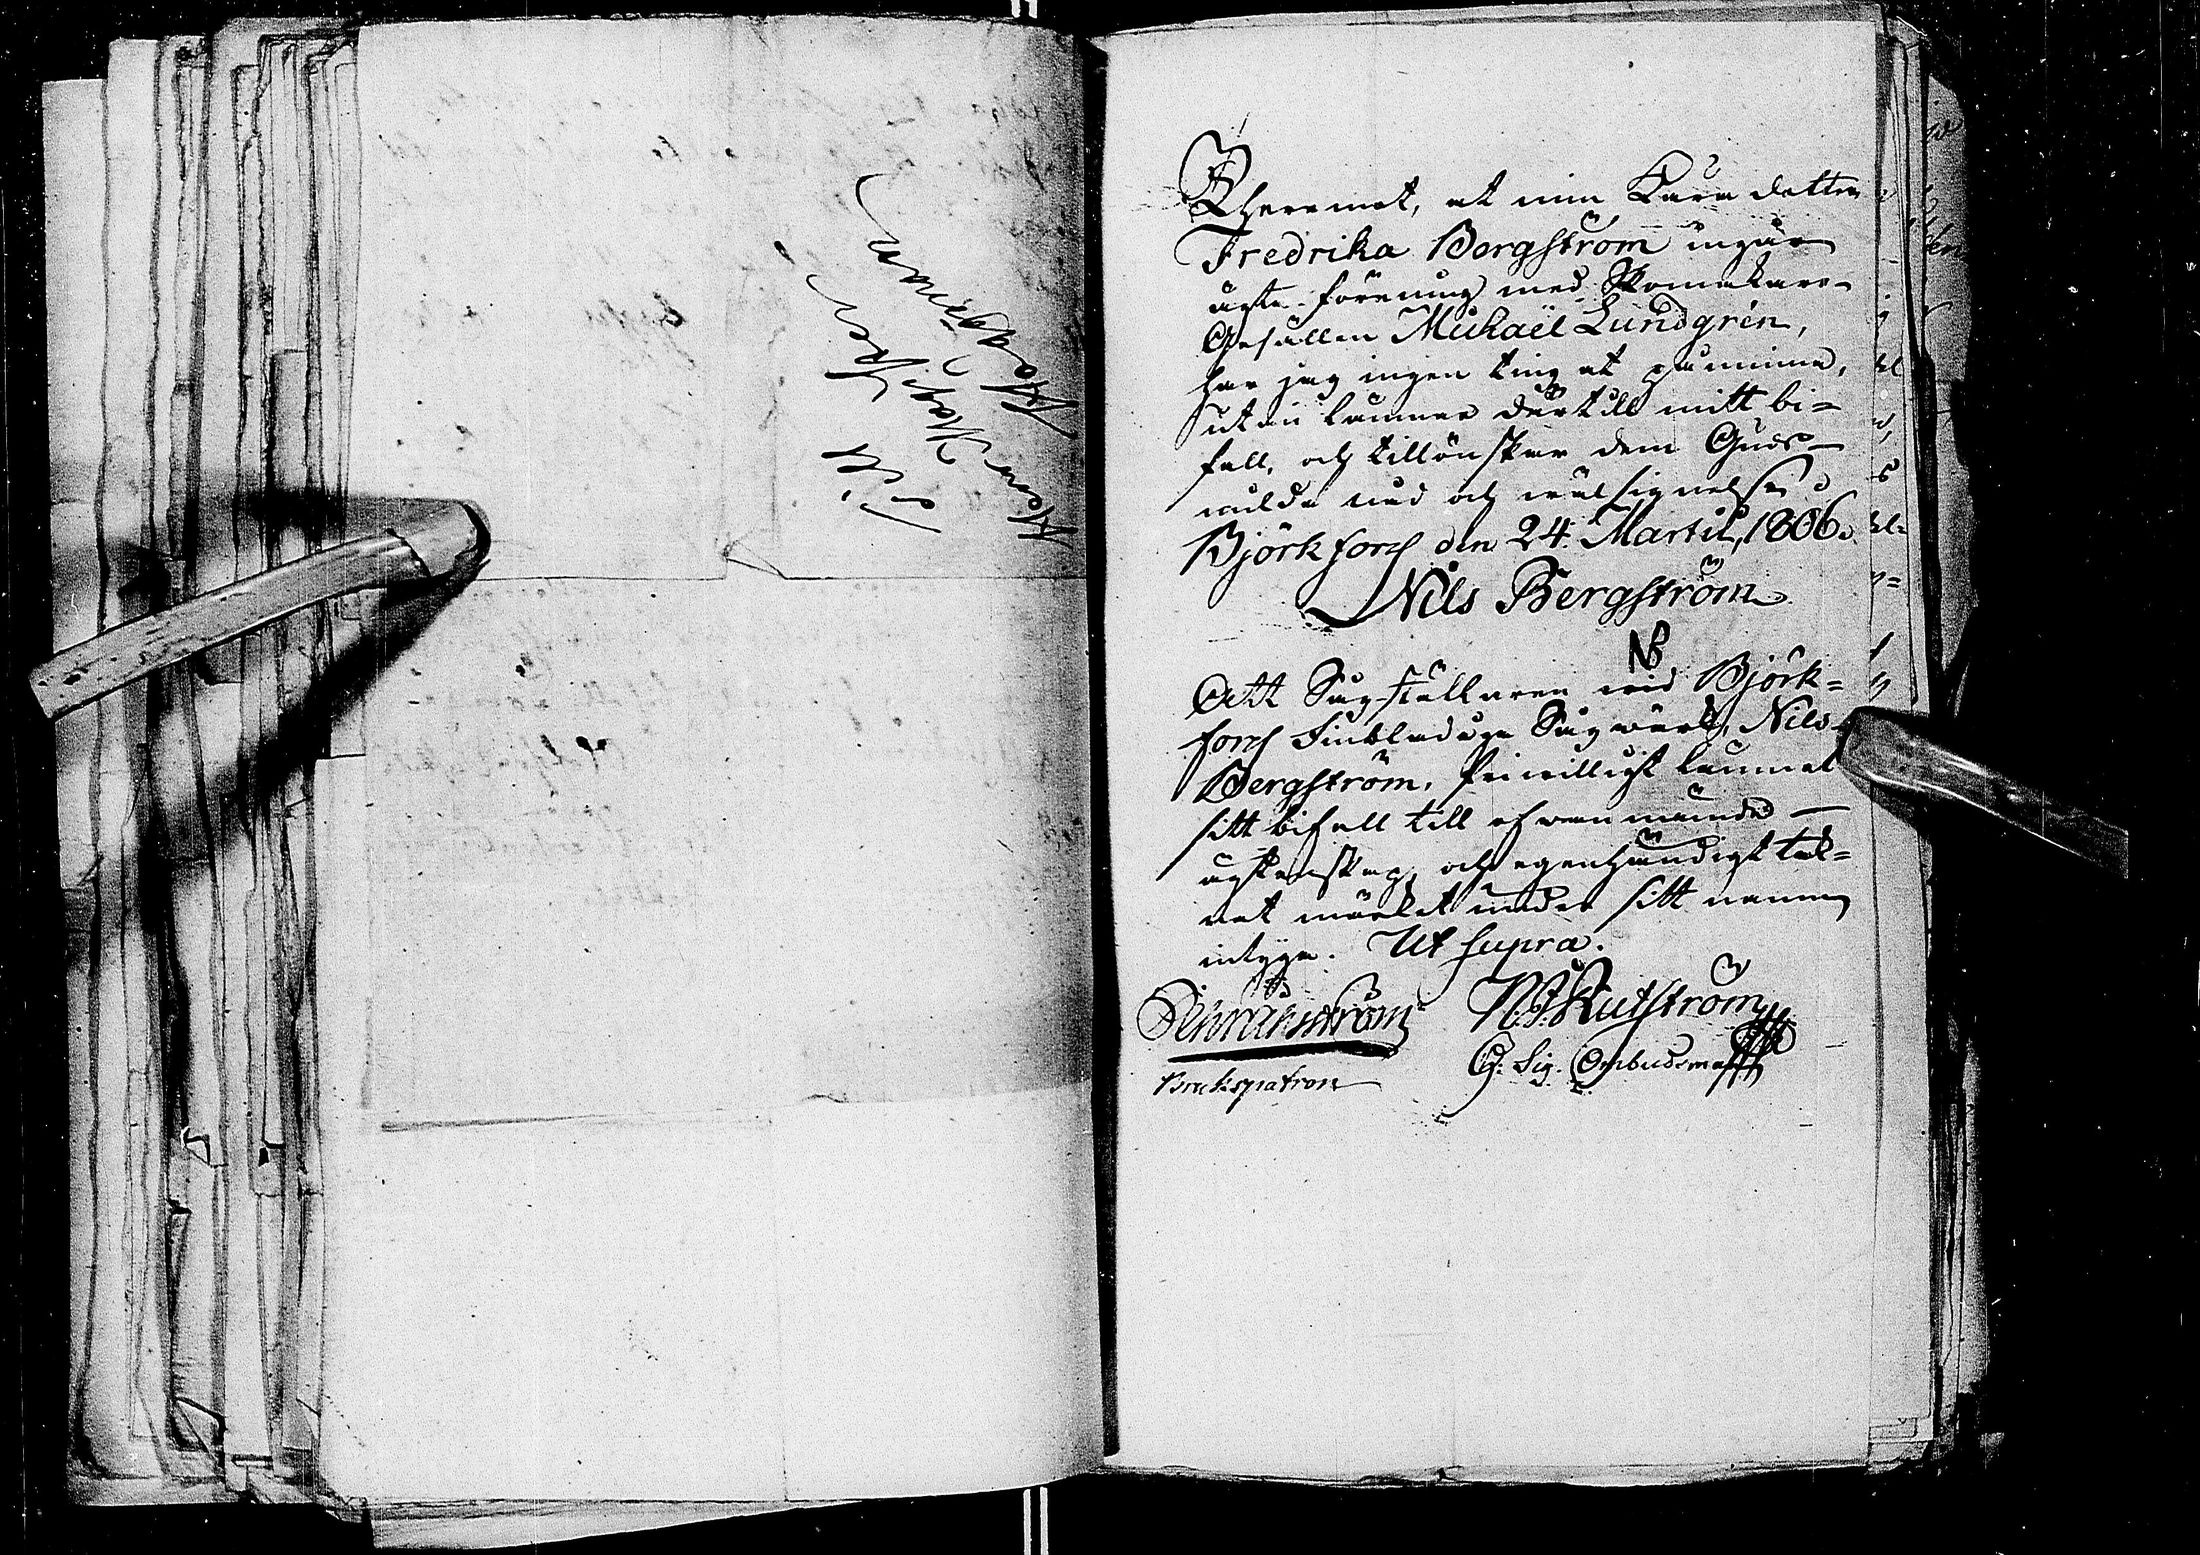 Till
Herr Mag:
Häggman
Theremot, at min Kära dotter
Fredrika Bergström ingår
ägta förening med Skomakare-
Gesällen Michaël Lundgrén,
har jag ingen ting at påminna,
utan lämnar därtill mitt bi=
fall, och tillönskar dem Guds
milda nåd och wälsignelse.
Björkfors den 24. Martii, 1806.
Nils Bergström
NB
Att Sågställaren wid Björk=
fors Finbladuge Sågwärk, Nils
Bergström, friwilligt lämnat
sitt bifall till ofwannämnde
ägtenskap, och egenhändigt tek=
nat märket under sitt namn
intyga. Ut supra.
N: J: Rutström
Brukspatron
G: Sig. Ombudsman